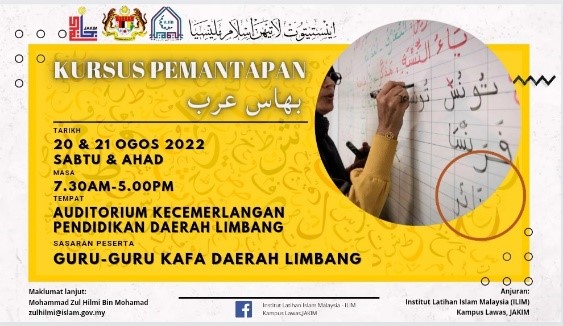 اينستيتوت لاتيهن اسلام مليسيا
KURSUS PEMANTAPAN
بهاس عرب
TARIKH
20 & 21 OGOS 2022
SABTU & AHAD
MASA
7.30AM-5.00PM
TEMPAT
AUDITORIUM KECEMERLANGAN
PENDIDIKAN DAERAH LIMBANG
SASARAN PESERTA
GURU-GURU KAFA DAERAH LIMBANG
ياء النسبة
تونس
Maklumat lanjut:
Mohammad Zul Hilmi Bin Mohamad
zulhilmi@islam.gov.my
Institut Latihan Islam Malaysia - ILIM
Kampus Lawas,JAKIM
Anjuran:
Institut Latihan Islam Malaysia (ILIM)
Kampus Lawas, JAKIM